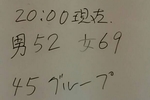 20:00現在
男52 女69
45グループ